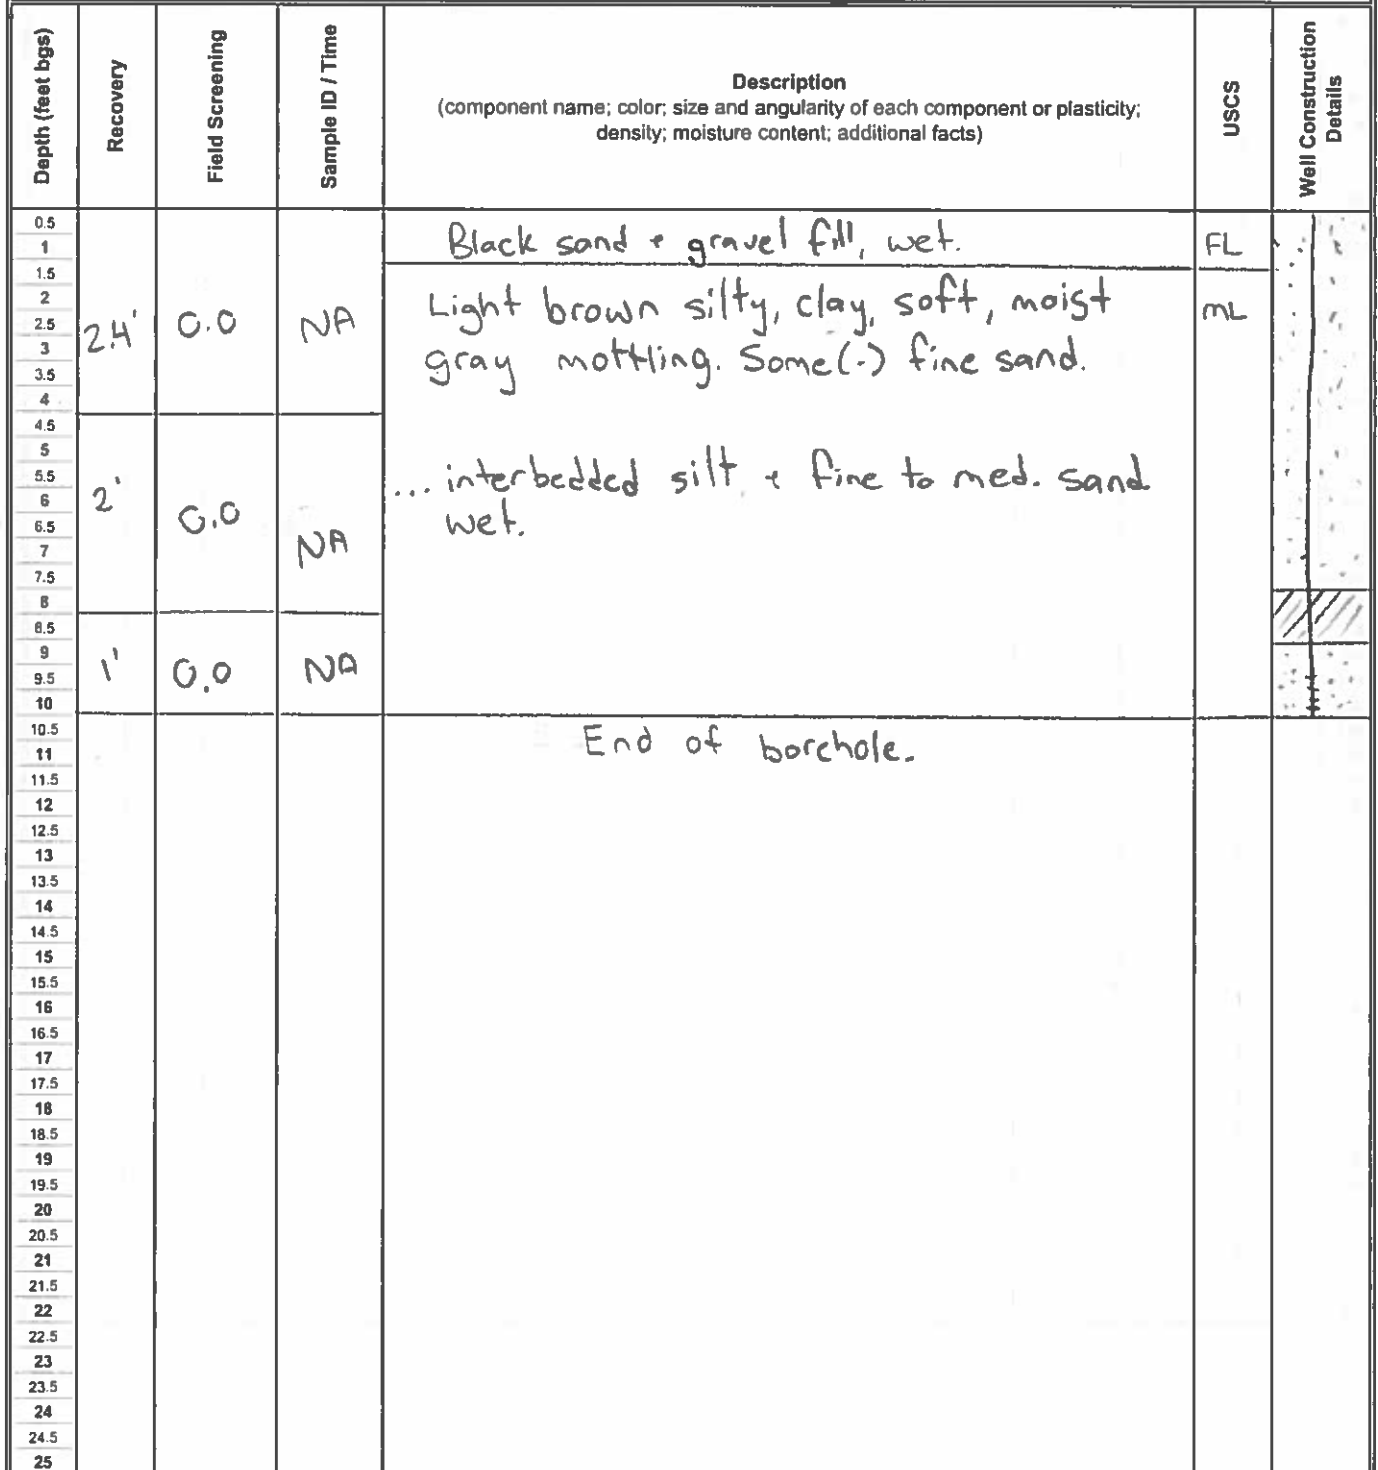 Depth (feet bgs)
Recovery
Field Screening
Sample ID / Time
Description
(component name; color; size and angularity of each component or plasticity;
density; moisture content; additional facts)
USCS
Well Construction
Details
0.5
Black sand + gravel fill, wet.
FL
1
1.5
2
2.4'
0.0
NA
Light brown silty, clay, soft, moist
mL
2.5
3
gray mottling. Some(-) fine sand.
3.5
4
4.5
5
5.5
2'
0.0
NA
... interbedded silt + fine to med. sand
6
6.5
wet.
7
7.5
8
8.5
9
1'
0.0
NA
9.5
10
10.5
End of borehole.
11
11.5
12
12.5
13
13.5
14
14.5
15
15.5
16
16.5
17
17.5
18
18.5
19
19.5
20
20.5
21
21.5
22
22.5
23
23.5
24
24.5
25